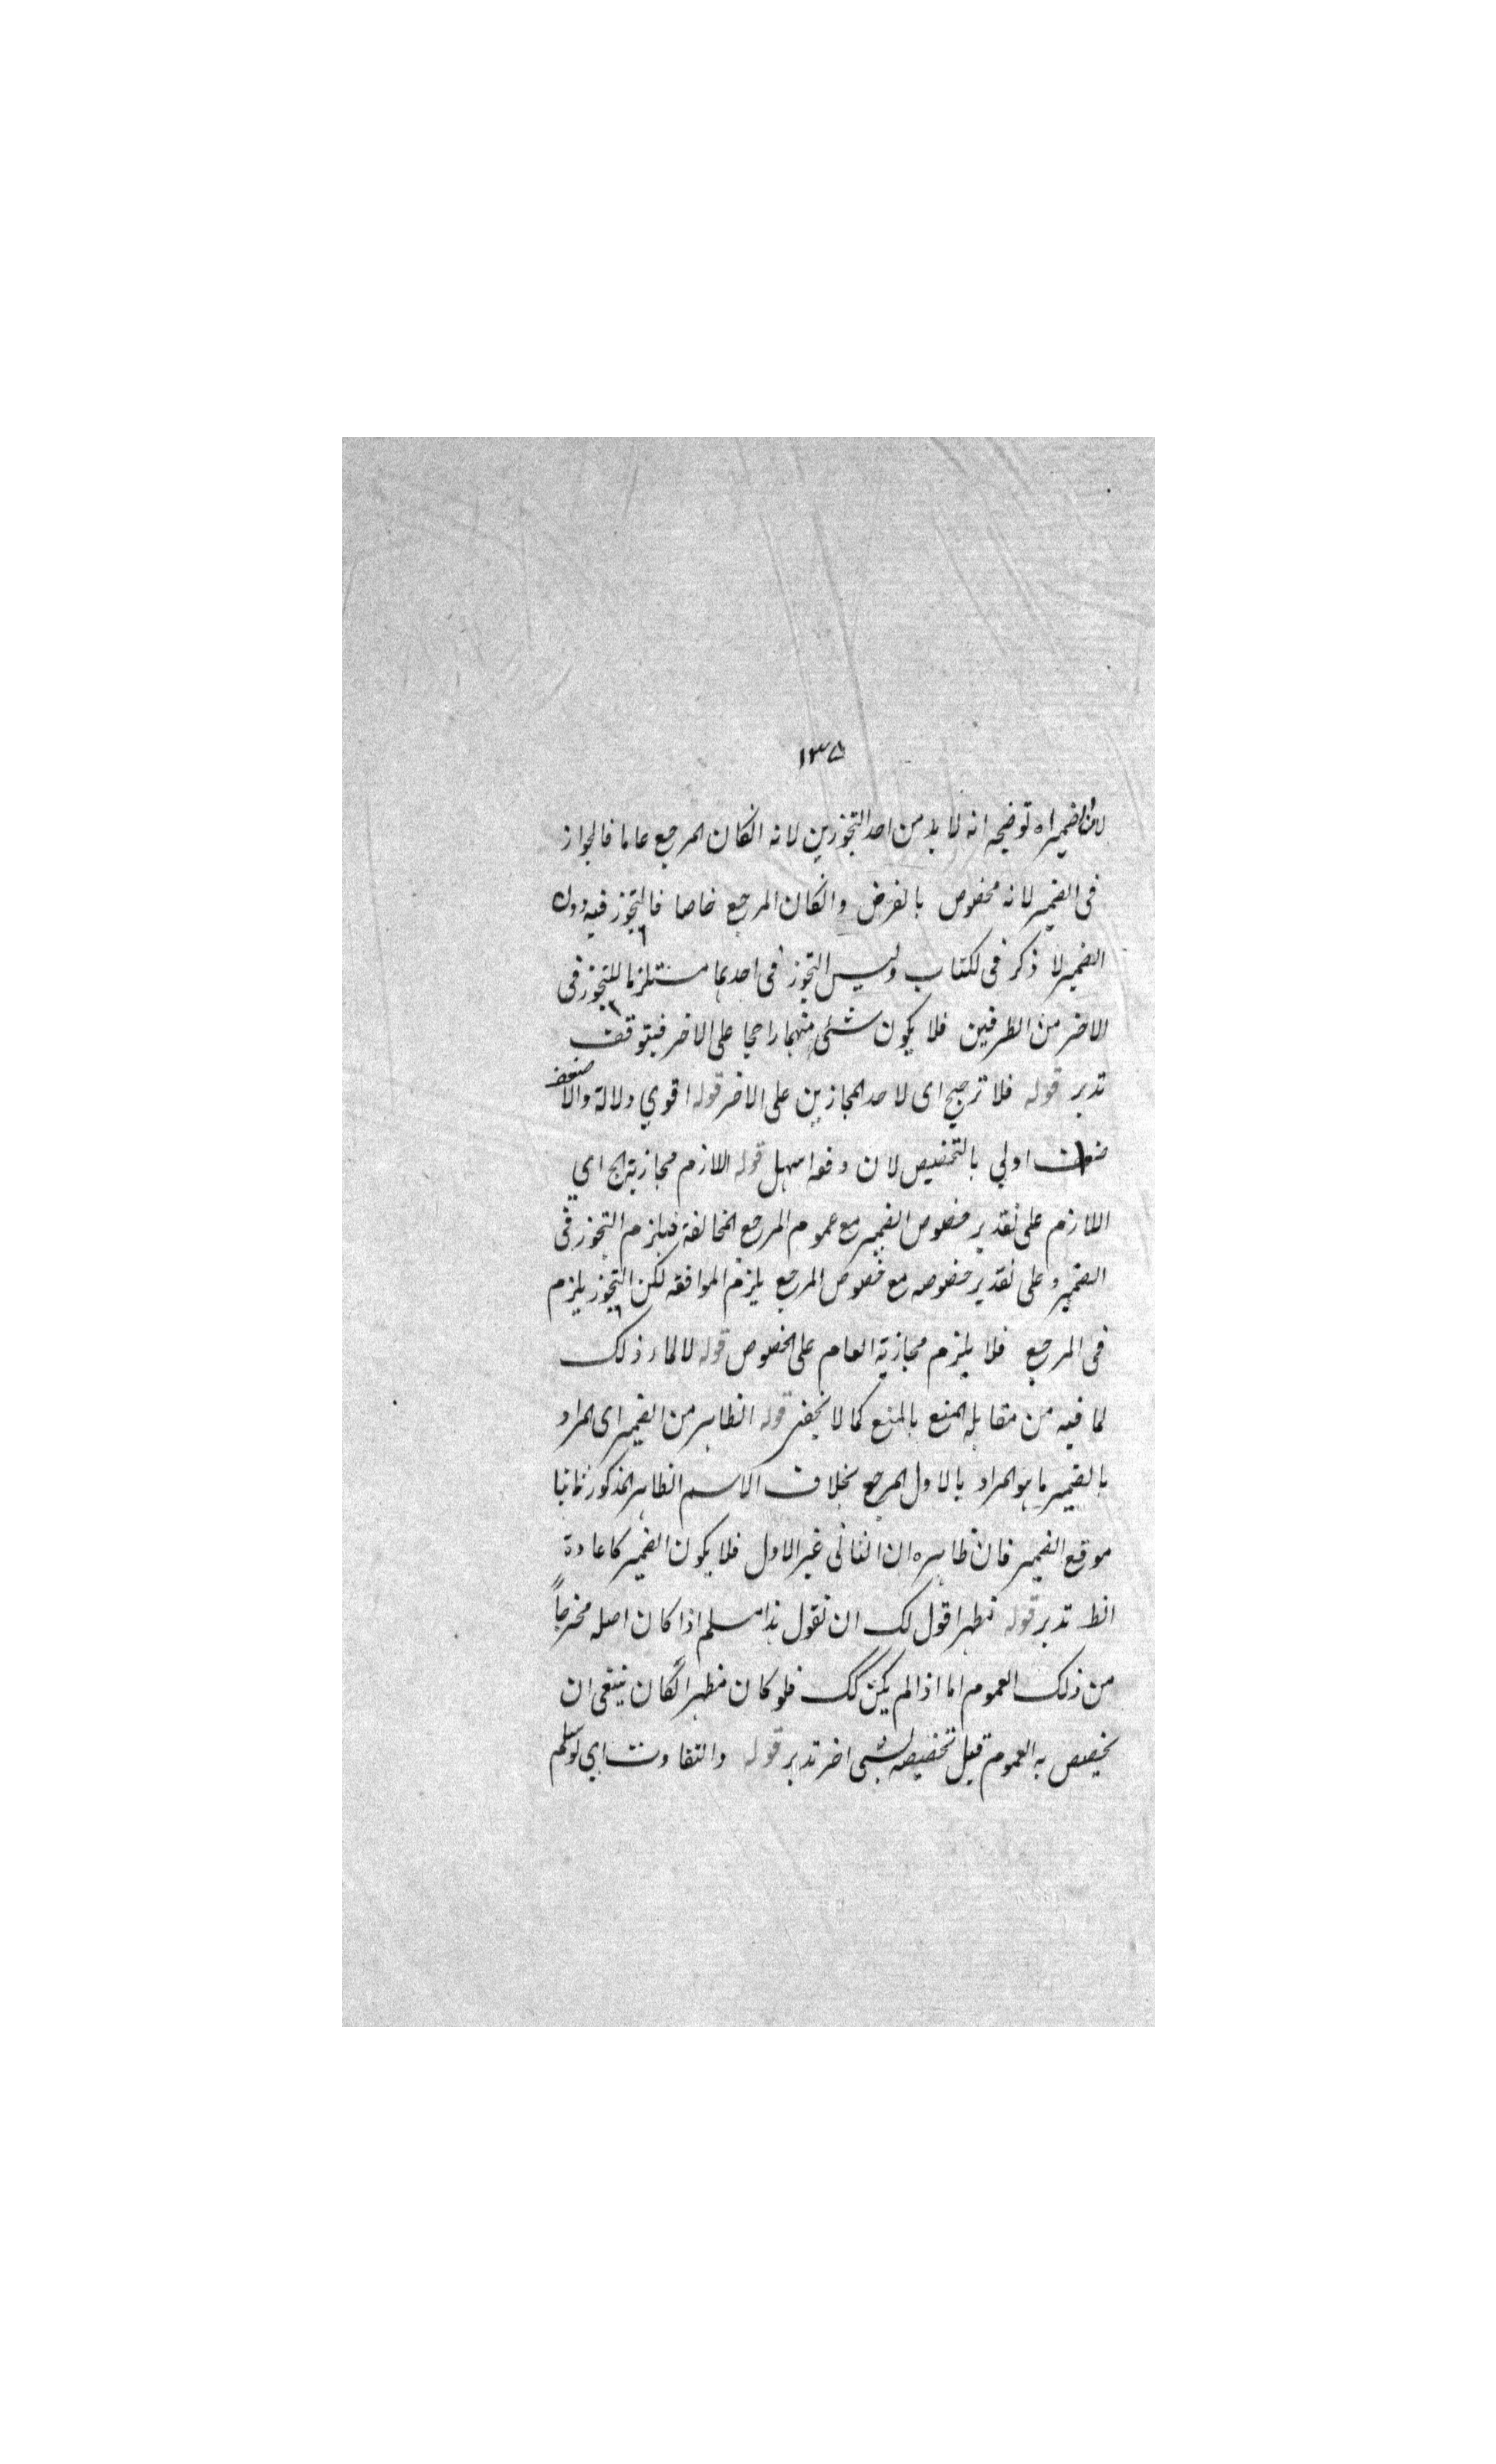 ١٣٥
لان الضمير اه توضيحه انه لا بد من احد التجوزين لانه انكان المرجع عاما فالجواز
فى الضمير لانه مخصوص بالفرض وانكان المرجع خاصا فالتجوز فيه دون
الضمير لا ذكر فى لكتاب وليس التجوز فى احدهما مستلزما للتجوز فى
الاخر من الطرفين فلا يكون شئ منهما راجحا على الاخر فيتوقف
تدبر قوله فلا ترجيح اى لاحد المجازين على الاخر قوله اقوي دلالة والا
ضعف اولي بالتخصيص لان دفعه اسهل قوله اللازم مجازية الخ اي
اللازم على تقدير خصوص الضمير مع عموم المرجع المخالفة فيلزم التجوز فى
الضمير وعلى تقدير خصوصه مع خصوص المرجع يلزم الموافقه لكن التجوز يلزم
فى المرجع فلا يلزم مجازية العام على الخصوص قوله ذلك
لما فيه من مقابله المنع بالمنع كما لا يخفى قوله الظاهر من الضمير اى المراد
بالضمير ما هو المراد بالاول المرجع بخلاف الاسم الظاهر المذكور ثانيا
موقع الضمير فان ظاهره ان الثانى غير الاول فلا يكون الضمير كاعادة
الظ تدبر قوله نظهر اقول لك ان تقول هذا مسلم اذا كان اصله مخرجاً
من ذلك العموم اما اذا لم يكن كك فلو كان مظهرا لكان ينبغى ان
يخصص به العموم قبل تخصيصه بشى اخر تدبر قوله والتفاوت اي لو سلم